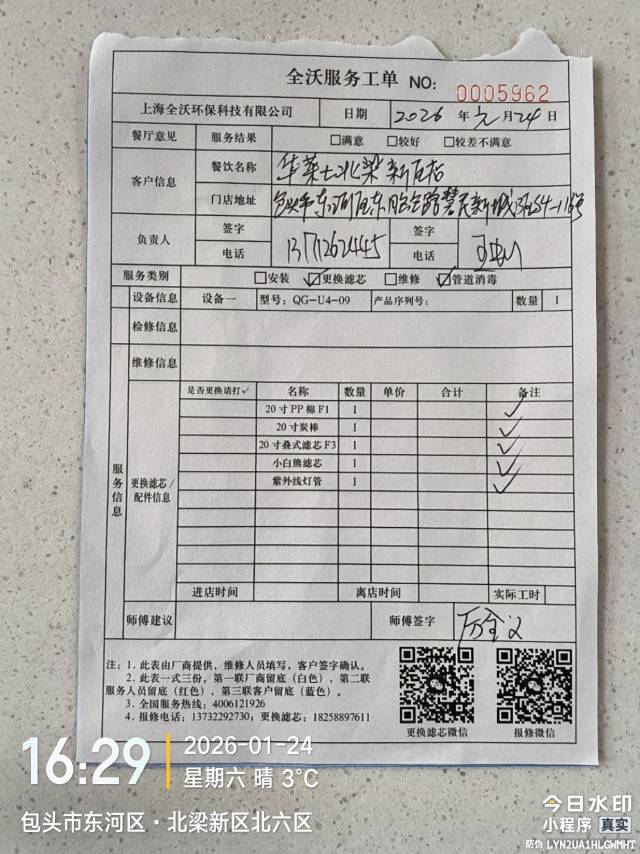 全沃服务工单 NO: 0005962
上海全沃环保科技有限公司 日期 2026 年 元 月 24 日
餐厅意见 服务结果 □满意 □较好 □较差不满意
客户信息 餐饮名称 华莱士北梁新百店
门店地址 包头市东河区东
负责人 签字 签字
电话 13712624445 电话
服务类别 □安装 ☑更换滤芯 □维修 ☑管道消毒
设备信息 设备一 型号：QG-U4-09 产品序列号： 数量 1
检修信息
维修信息
服务信息
更换滤芯/配件信息
是否更换请打✓ 名称 数量 单价 合计 备注
20寸PP棉F1 1 ✓
20寸炭棒 1 ✓
20寸叠式滤芯F3 1 ✓
小白熊滤芯 1 ✓
紫外线灯管 1 ✓
进店时间 离店时间 实际工时
师傅建议 师傅签字
注：1. 此表由厂商提供，维修人员填写，客户签字确认。
2. 此表一式三份，第一联厂商留底（白色）、第二联
服务人员留底（红色）、第三联客户留底（蓝色）。
3. 全国服务热线：4006121926
4. 报修电话：13732292730；更换滤芯：18258897611
更换滤芯微信 报修微信
16:29 2026-01-24
星期六 晴 3℃
包头市东河区·北梁新区北六区
今日水印
小程序 真实
防伪 LYN2UA1HLGWMHT